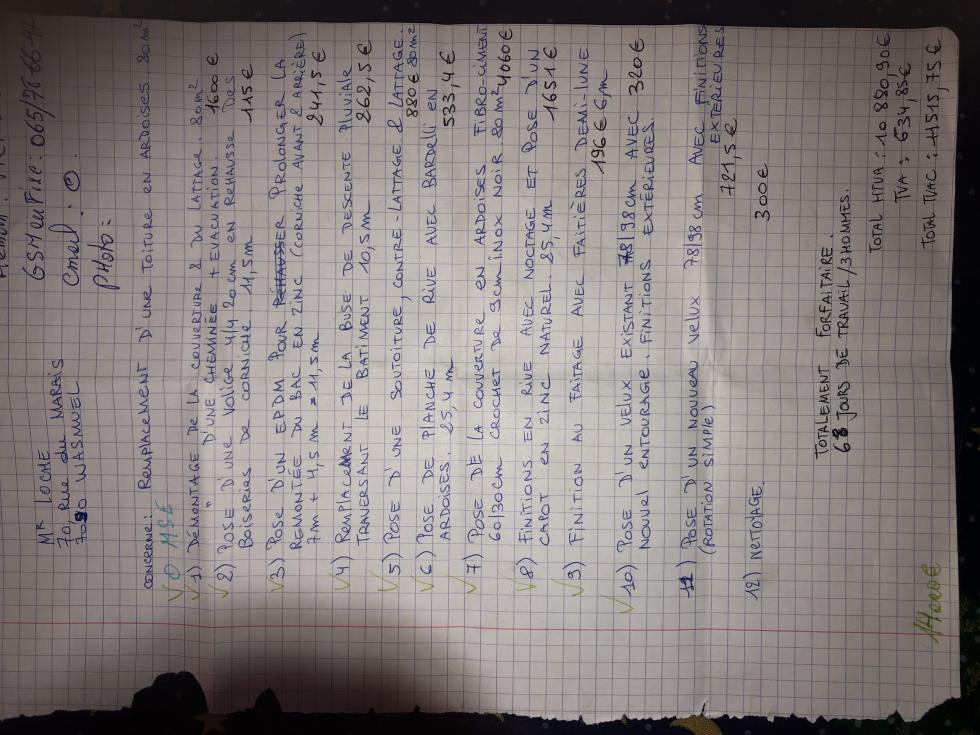 MR LOCHE
70, Rue du MARAIS
7090 WASMUEL
GSM ou Fixe : 065/78 66 42
Email :
PHoto :
CONCERNE : REMPLACEMENT D'UNE TOITURE EN ARDOISES 80m²
0
1) DÉMONTAGE DE LA COUVERTURE & DU LATTAGE. 80m²
" D'UNE CHEMINÉE + EVACUATION. 1600€
2) POSE D'UNE VOLIGE 4/4 20cm EN REHAUSSE DES
BOISERIES DE CORNICHE. 11,5m 115€
3) POSE D'UN EPDM POUR REHAUSSER PROLONGER LA
REMONTÉE DU BAC EN ZINC (CORNICHE AVANT & ARRIÈRE)
7m + 4,5m = 11,5m 241,5€
4) REMPLACEMENT DE LA BUSE DE DESCENTE PLUVIALE
TRAVERSANT LE BATIMENT 10,5m 262,5€
5) POSE D'UNE SOUTOITURE, CONTRE-LATTAGE & LATTAGE.
880€ 80m²
6) POSE DE PLANCHE DE RIVE AVEC BARDELLI EN
ARDOISES. 25,4m 533,4€
7) POSE DE LA COUVERTURE EN ARDOISES FIBRO-CIMENT
60/30cm CROCHET DE 9cm INOX NOIR. 80m² 4060€
8) FINITIONS EN RIVE AVEC NOCTAGE ET POSE D'UN
CAPOT EN ZINC NATUREL. 25,4m 1651€
9) FINITION AU FAITAGE AVEC FAITIÈRES DEMI-LUNE
196€ 6,m
10) POSE D'UN VELUX EXISTANT 78/98cm AVEC 320€
NOUVEL ENTOURAGE. FINITIONS EXTÉRIEURES.
11) POSE D'UN NOUVEAU VELUX 78/98cm AVEC FINITIONS
(ROTATION SIMPLE) 721,5€ EXTÉRIEURES
12) NETTOYAGE. 300€
TOTALEMENT FORFAITAIRE.
JOURS DE TRAVAIL / 3 HOMMES.
TOTAL HTVA : 10.880,90€
TVA : 634,85€
TOTAL TVAC : 11515,75€
14000€